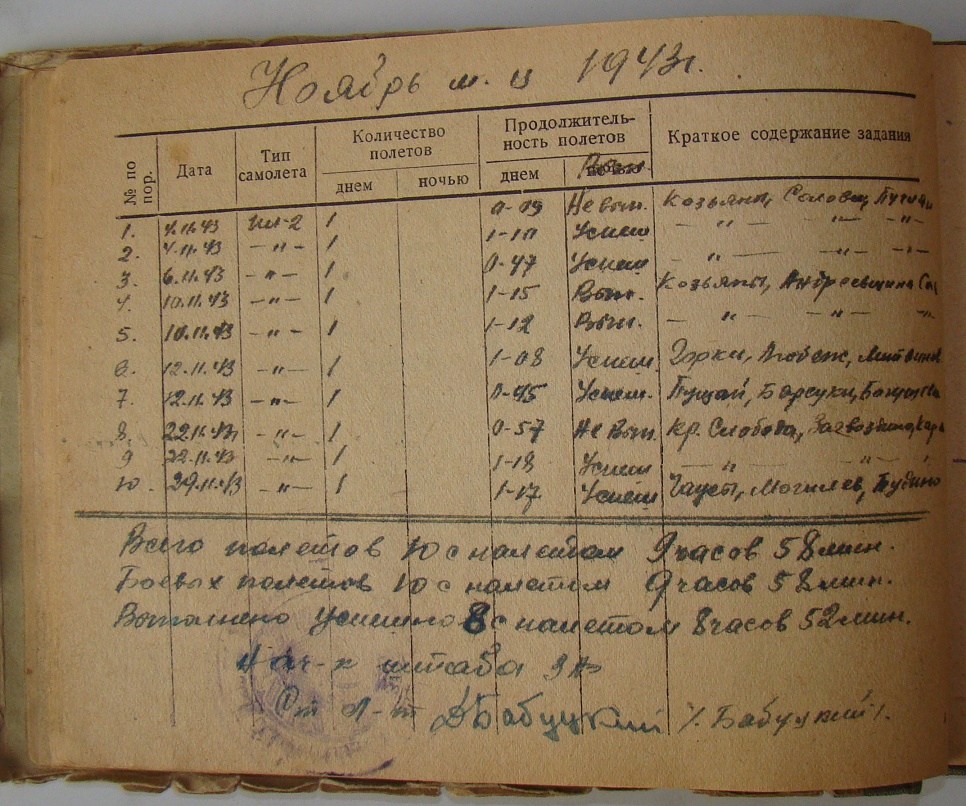 Ноябрь м-ц 1943г.
№ по пор. Дата Тип самолета Количество полетов Продолжитель-ность полетов Краткое содержание задания
днем ночью днем Вып.
1. 4.11.43 Ил-2 1 0-09 Не вып. Козьяны,
2. 4.11.43 —"— 1 1-10 Успеш — " — —"— —"—
3. 6.11.43 —"— 1 0-47 Успеш — " — —"— —"—
4. 10.11.43 —"— 1 1-15 Вып. Козьяны,
5. 10.11.43 —"— 1 1-12 Вып. — " — —"— "
6. 12.11.43 —"— 1 1-08 Успеш. Горки,
7. 12.11.43 —"— 1 0-45 Успеш. Пущай, Барсуки,
8. 22.11.43 —"— 1 0-57 Не вып. Кр. Слобода,
9 22.11.43 —"— 1 1-18 Успеш — " — " —
10. 29.11.43 —"— 1 1-17 Успеш Чаусы, Могилев,
Всего полетов 10 с налетом 9 часов 58 мин.
Боевых полетов 10 с налетом 9 часов 58 мин.
Выполнено успешно 8 с налетом 8 часов 52 мин.
Нач-к штаба
Ст л-т Бабуцкий /. Бабуцкий /.